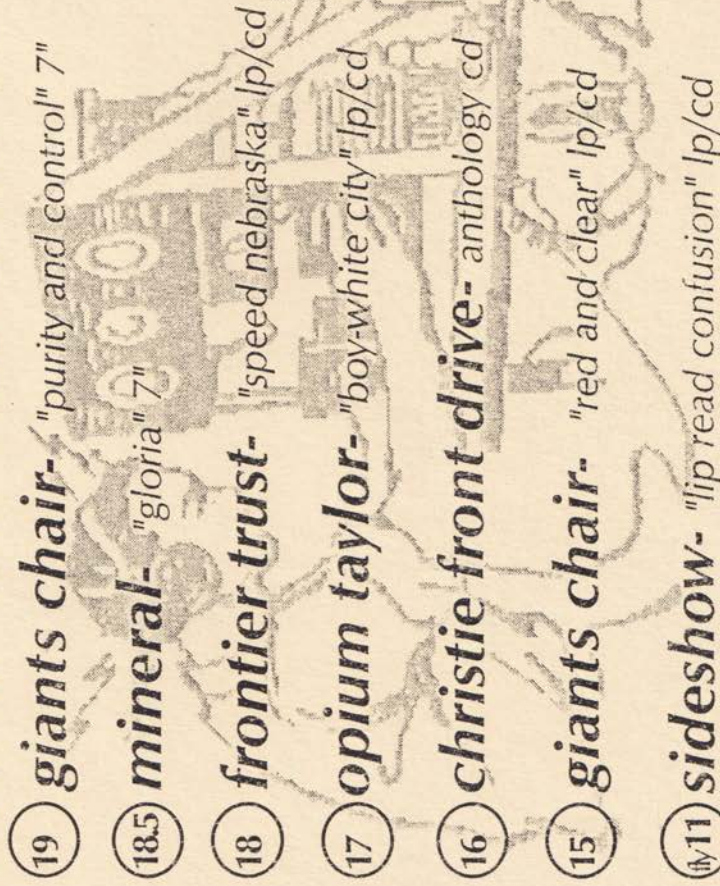 19 giants chair- "purity and control" 7"
18.5 mineral- "gloria" 7"
18 frontier trust- "speed nebraska" lp/cd
17 opium taylor- "boy-white city" lp/cd
16 christie front drive- anthology cd
15 giants chair- "red and clear" lp/cd
fly11 sideshow- "lip read confusion" lp/cd